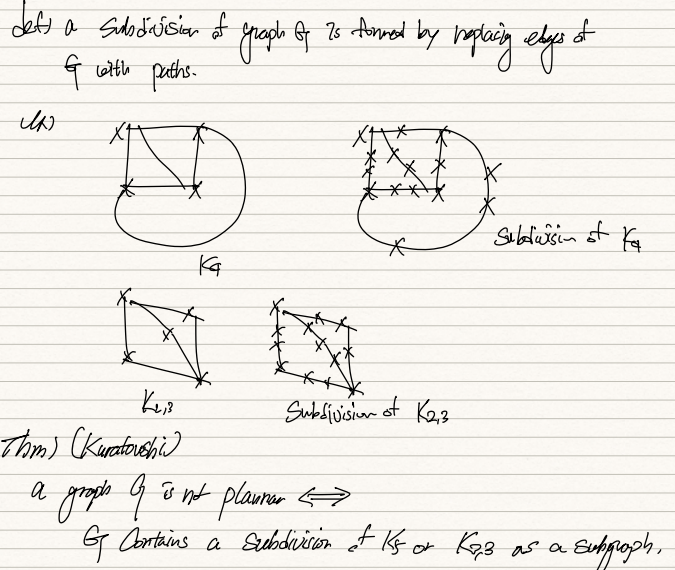 def) a subdivision of graph G is formed by replacing edges of
G with paths.
ex)
K4
Subdivision of K4
K2,3
Subdivision of K2,3
Thm) (Kuratovski)
a graph G is not plannar ⟺
G Contains a subdivision of K5 or K3,3 as a subgraph.